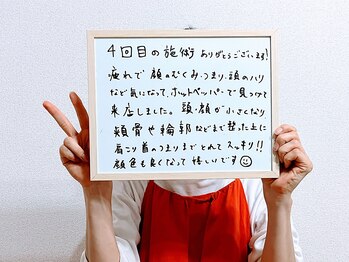 4回目の施術 ありがとうございます!
疲れで 顔のむくみ・つまり・頭のハリ
など気になって、ホットペッパーで見つけて
来店しました。頭・顔が小さくなり
頬骨や輪郭などまで整った上に
肩こり首のつまりまでとれて スッキリ!!
顔色も良くなって 嬉しいです☺